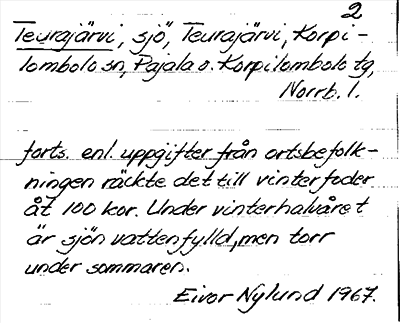 2
Teurajärvi, sjö, Teurajärvi, Korpi-
lombolo sn, Pajala o. Korpilombolo tg,
Norrb. l.
forts. enl. uppgifter från ortsbefolk-
ningen räckte det till vinterfoder
åt 100 kor. Under vinterhalvåret
är sjön vattenfylld, men torr
under sommaren.
Eivor Nylund 1967.